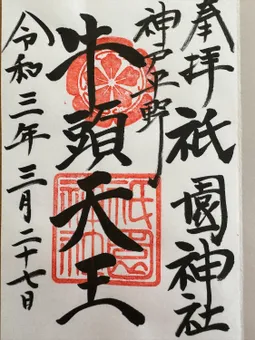 奉拝
祇園神社
神戸平野
牛頭天王
令和三年三月二十七日
祇園神社